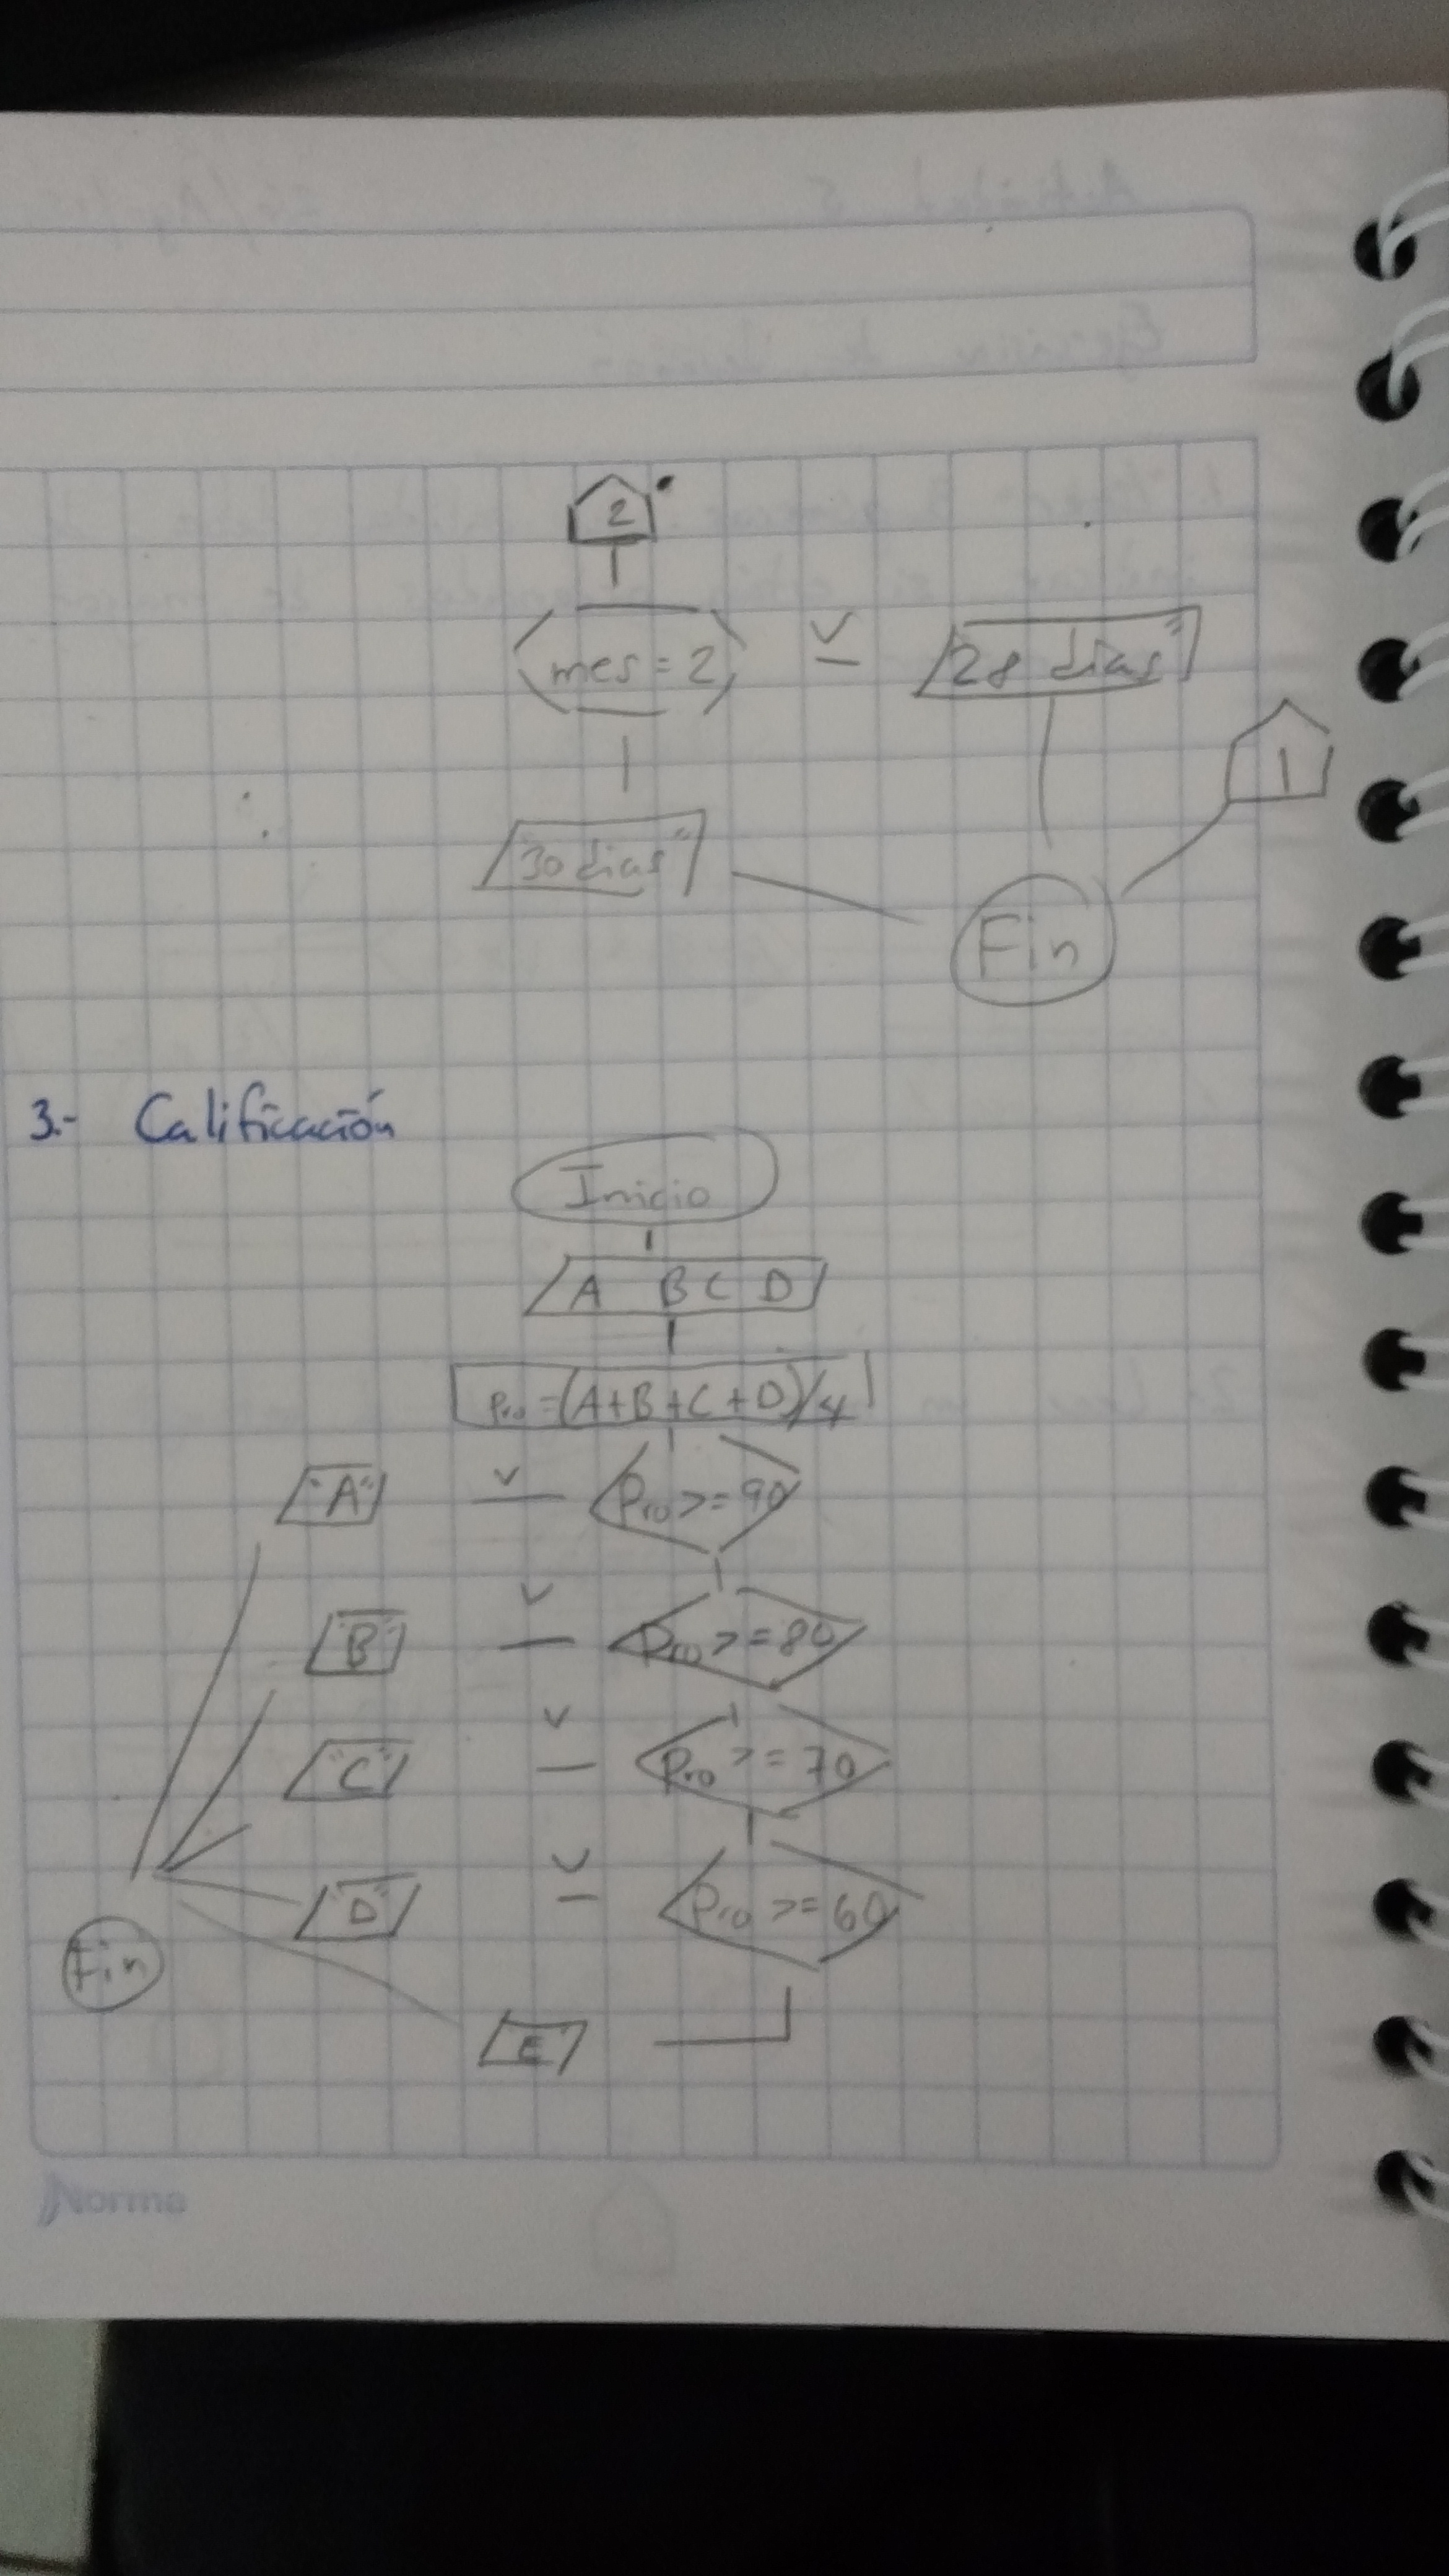 2
mes = 2
v
"28 dias"
1
"30 dias"
Fin
3.- Calificación
Inicio
A B C D
Pro = (A+B+C+D)/4
"A" v Pro >= 90
"B" v Pro >= 80
"C" v Pro >= 70
"D" v Pro >= 60
Fin
"E"
Norma